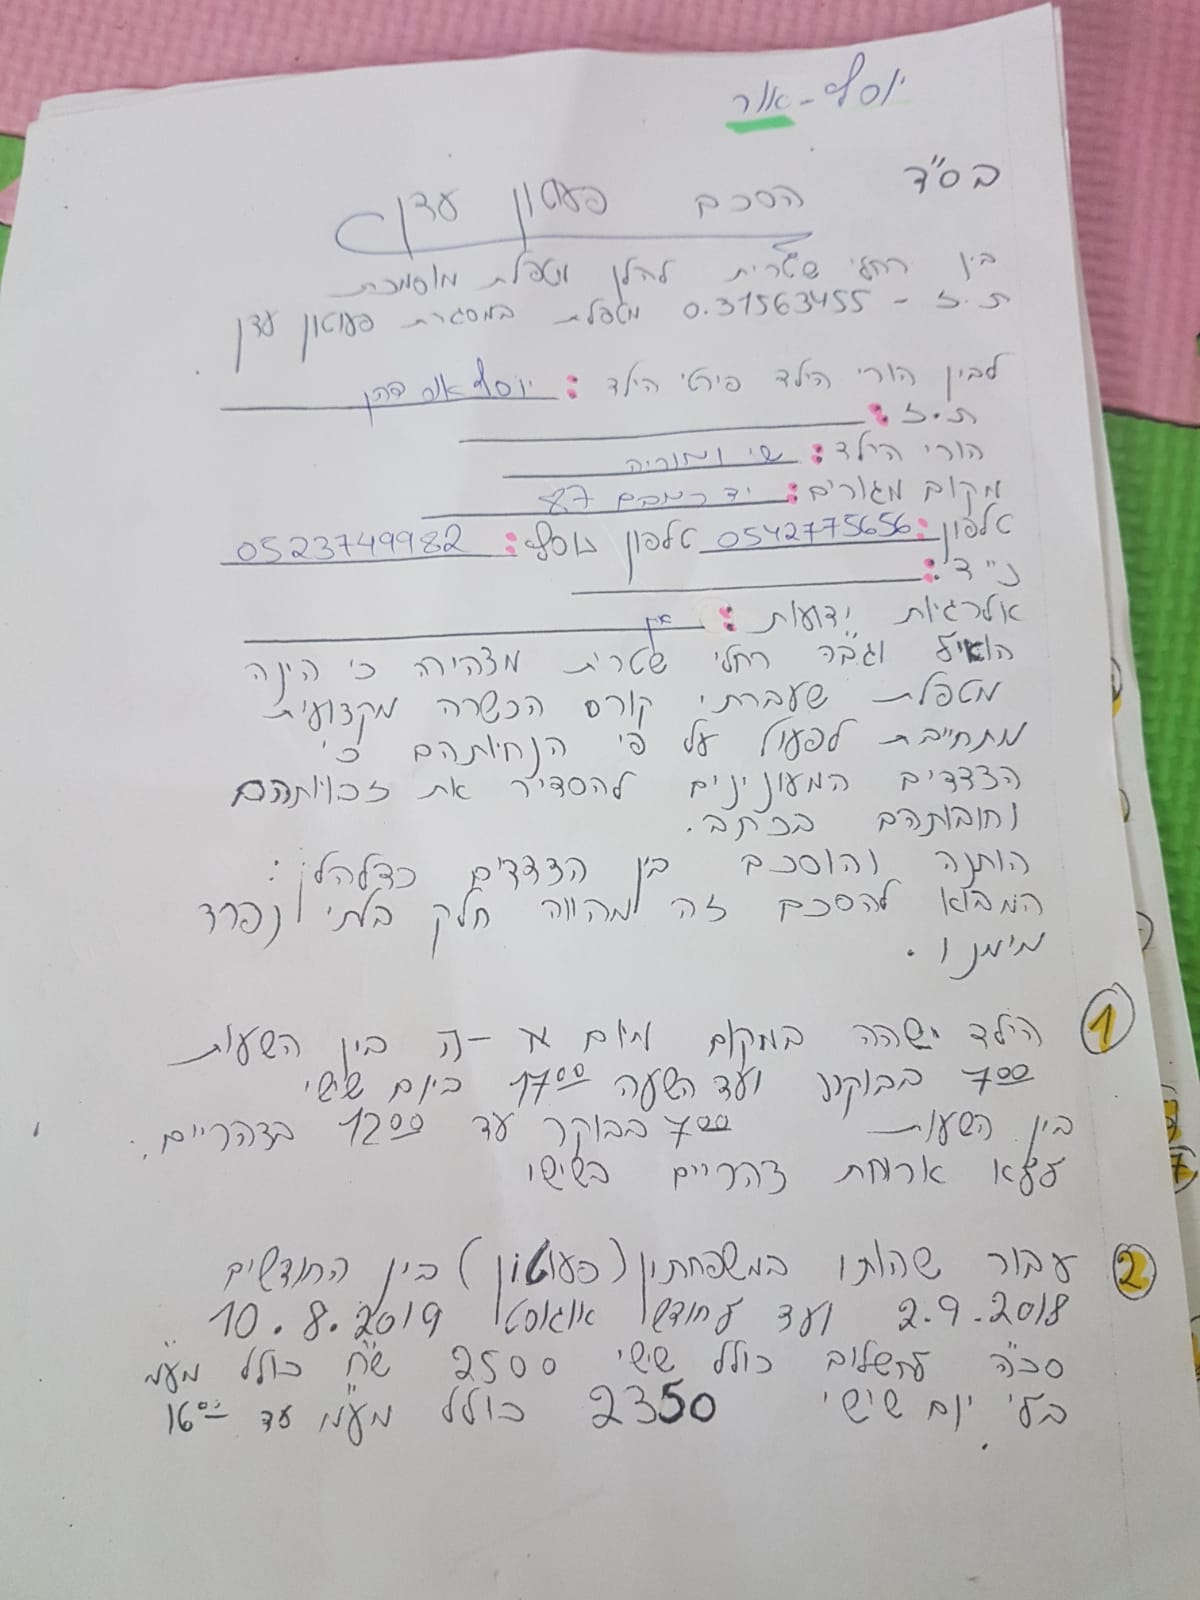 יוסף-אור
בס"ד
הסכם פעוטון עדן
בין רחלי שטרית להלן מטפלת מוסמכת
ת.ז - 0.31563455 מטפלת במסגרת פעוטון עדן
לבין הורי הילד פירטי הילד : יוסף אור כהן
ת.ז :
הורי הילד: שי ומוריה
מקום מגורים: יד רמבם 87
טלפון: 0542775656 טלפון נוסף: 0523749982
נ"ד :
אלרגיות ידועות : אין
הואיל וגב'ר רחלי שטרית מצהירה כי הינה
מטפלת שעברתי קורס הכשרה מקצועית
מתחייבת לפעול על פי הנחיותהם כי
הצדדים המעונינים להסדיר את זכויותהם
וחובותהם בכתב.
הותנה והוסכם בין הצדדים כדלהלן :
המבוא להסכם זה מהווה חלק בלתי נפרד
מימנו .
1 הילד ישהה במקום מיום א-ה בין השעות
7:00 בבוקר ועד השעה 17:00 ביום שישי
בין השעות 7:00 בבוקר עד 12:00 בצהריים.
ללא ארוחת צהריים בשישי
2 עבור שהותו במשפחתון (פעוטון) בין החודשים
2.9.2018 ועד לחודש אוגוסט 10.8.2019
סה"כ לתשלום כולל שישי 2500 ש"ח כולל מע"מ
בלי יום שישי 2350 כולל מע"מ עד 16:00